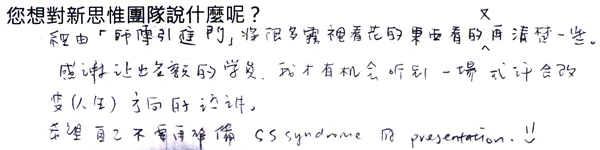 您想對新思惟團隊說什麼呢？
經由「師傅引進門」將很多霧裡看花的東西看的又再清楚一些。
感謝让出名額的学員，我才有机会听到一場或許会改
變(人生)方向的演講。
希望自己不需再準備 GS syndrome 的 presentation.